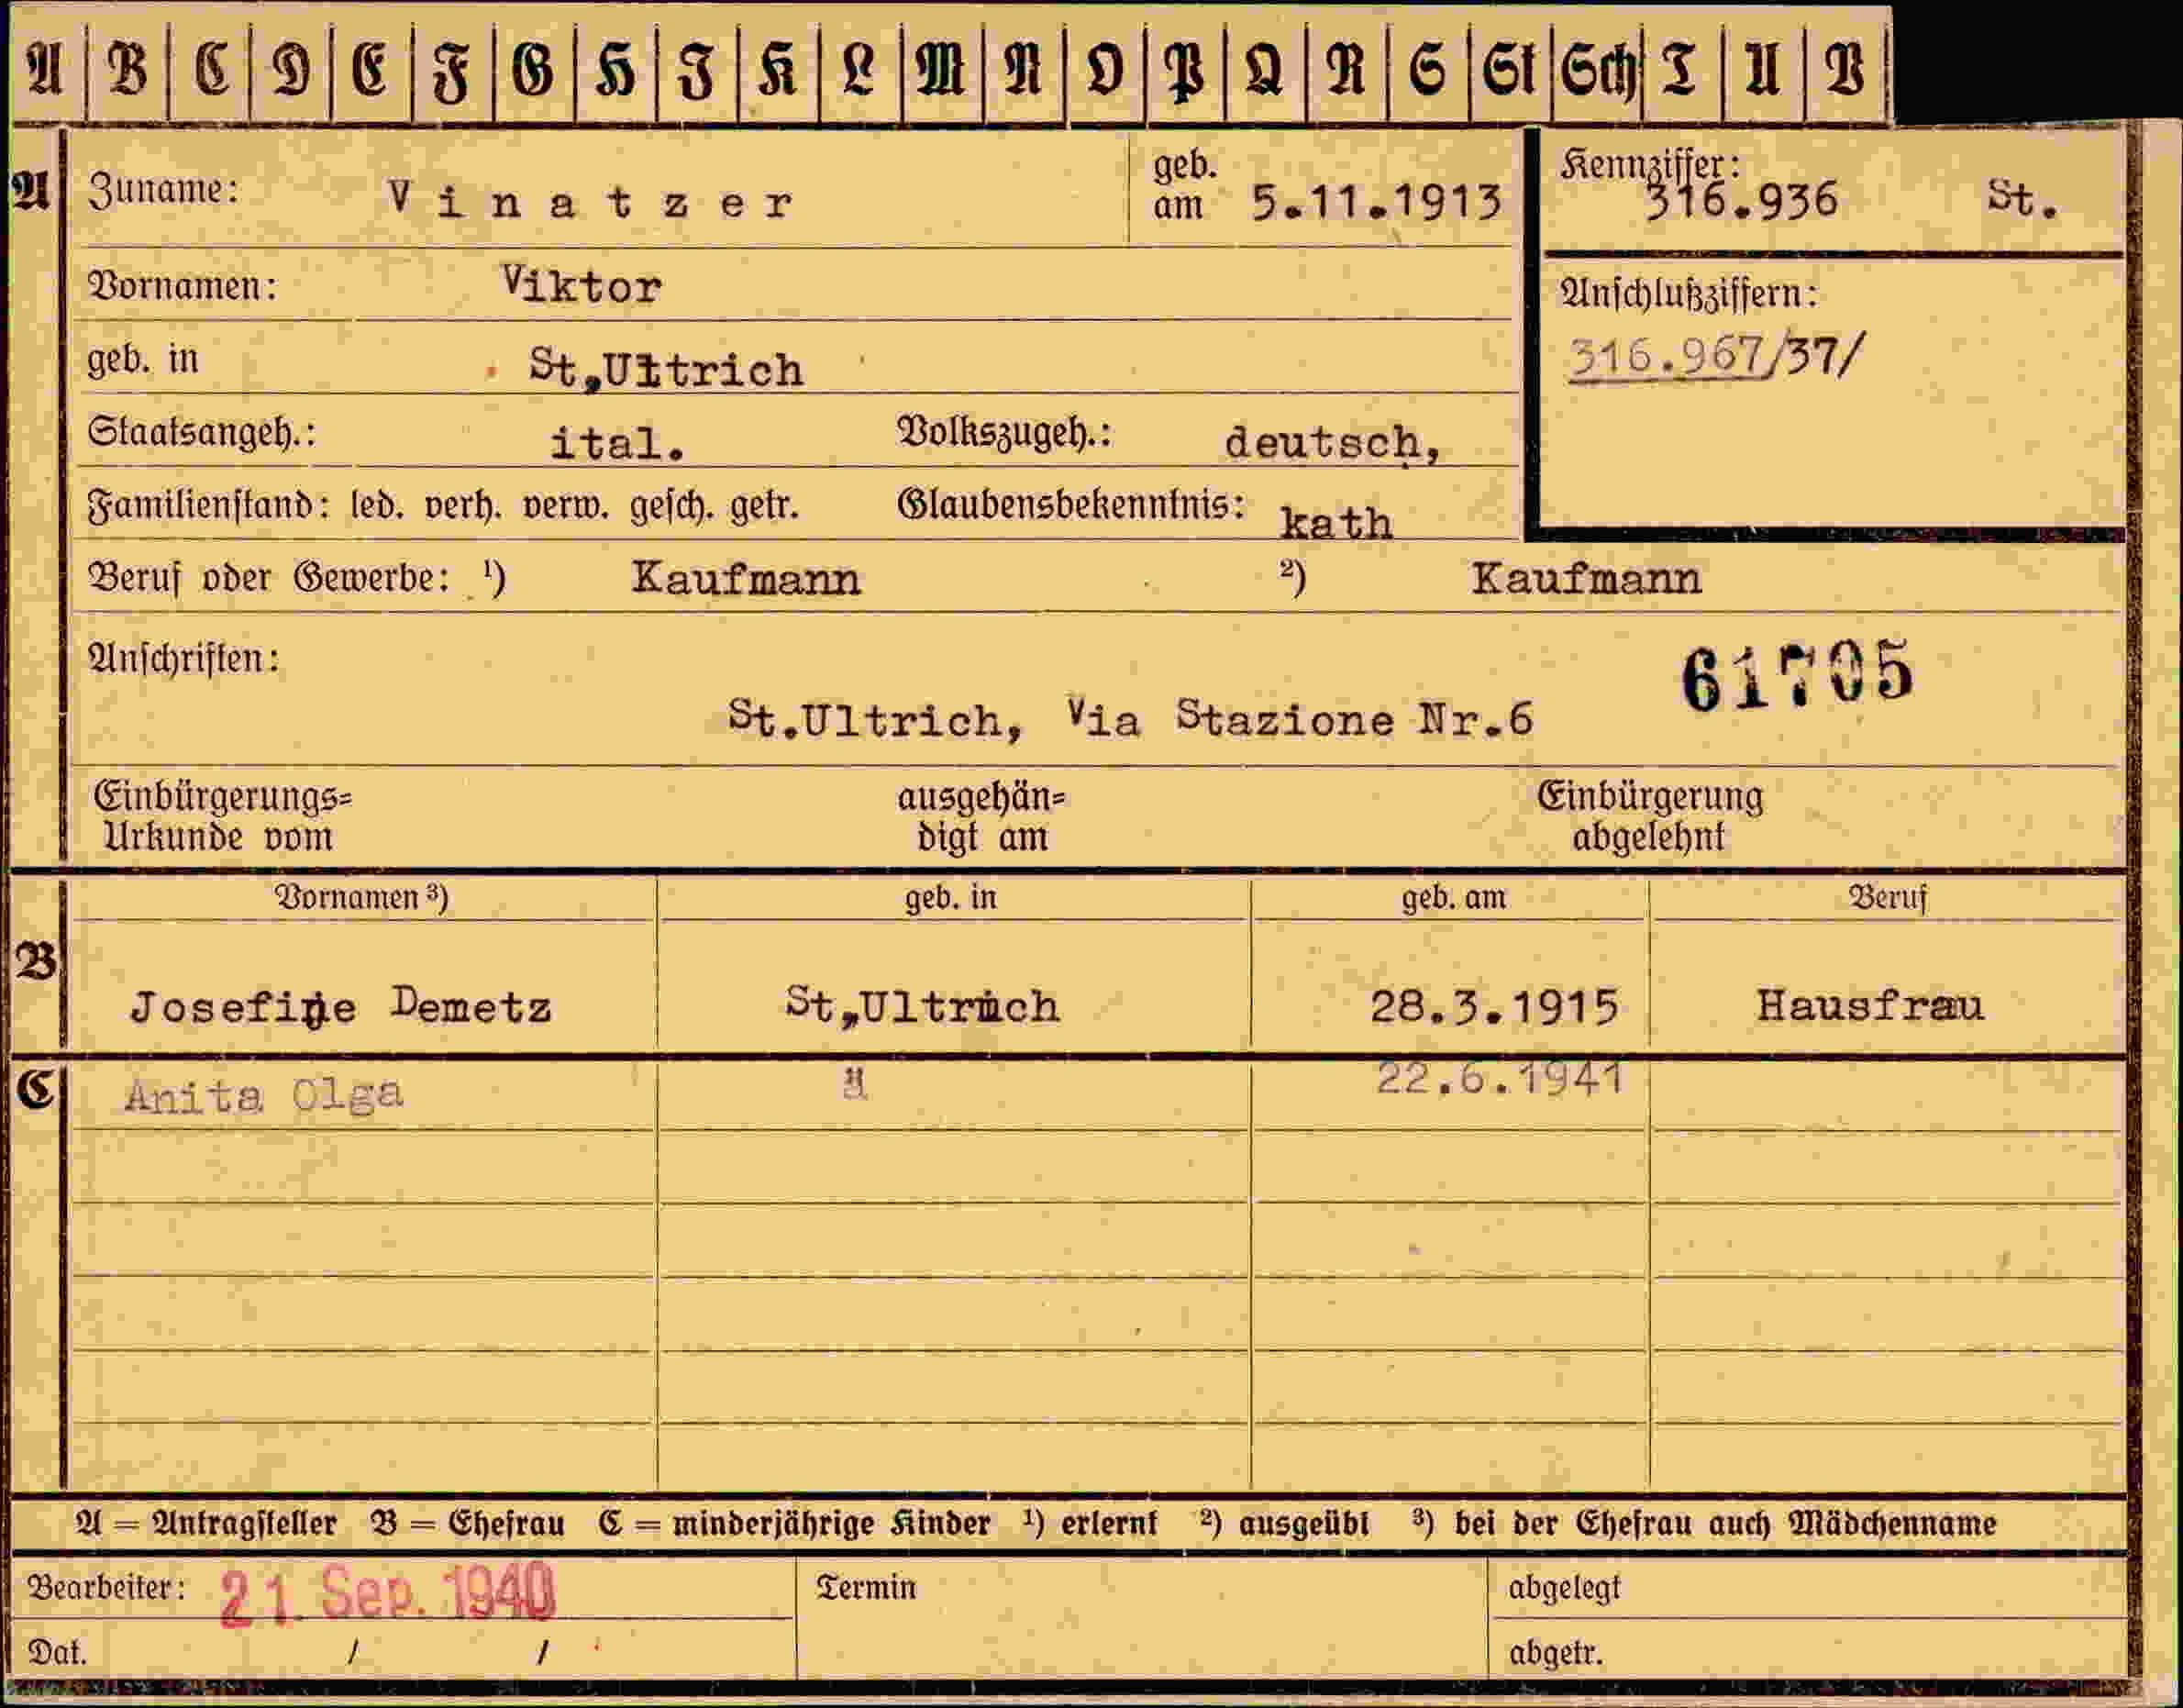 A B C D E F G H I K L M N O P Q R S St Sch T U V
A Zuname: Vinatzer geb. am 5.11.1913 Kennziffer: 316.936 St.
Vornamen: Viktor Anschlußziffern:
316.967/37/
geb. in St,Ultrich
Staatsangeh.: ital. Volkszugeh.: deutsch,
Familienstand: led. verh. verw. gesch. getr. Glaubensbekenntnis: kath
Beruf oder Gewerbe: ¹) Kaufmann ²) Kaufmann
Anschriften: 61705
St.Ultrich, Via Stazione Nr.6
Einbürgerungs= ausgehän= Einbürgerung
Urkunde vom digt am abgelehnt
Vornamen ³) geb. in geb. am Beruf
B
Josefine Demetz St,Ultrich 28.3.1915 Hausfrau
C Anita Olga " 22.6.1941
A = Antragsteller B = Ehefrau C = minderjährige Kinder ¹) erlernt ²) ausgeübt ³) bei der Ehefrau auch Mädchenname
Bearbeiter: 21. Sep. 1940 Termin abgelegt
Dat. / / abgetr.